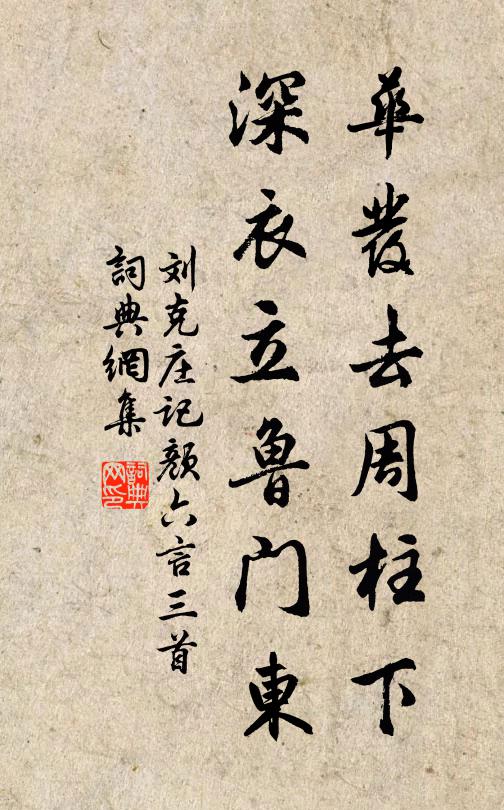 華發去周柱下
深衣立魯門東
刘克庄记颜六言三首
詞典網集
詞典网印